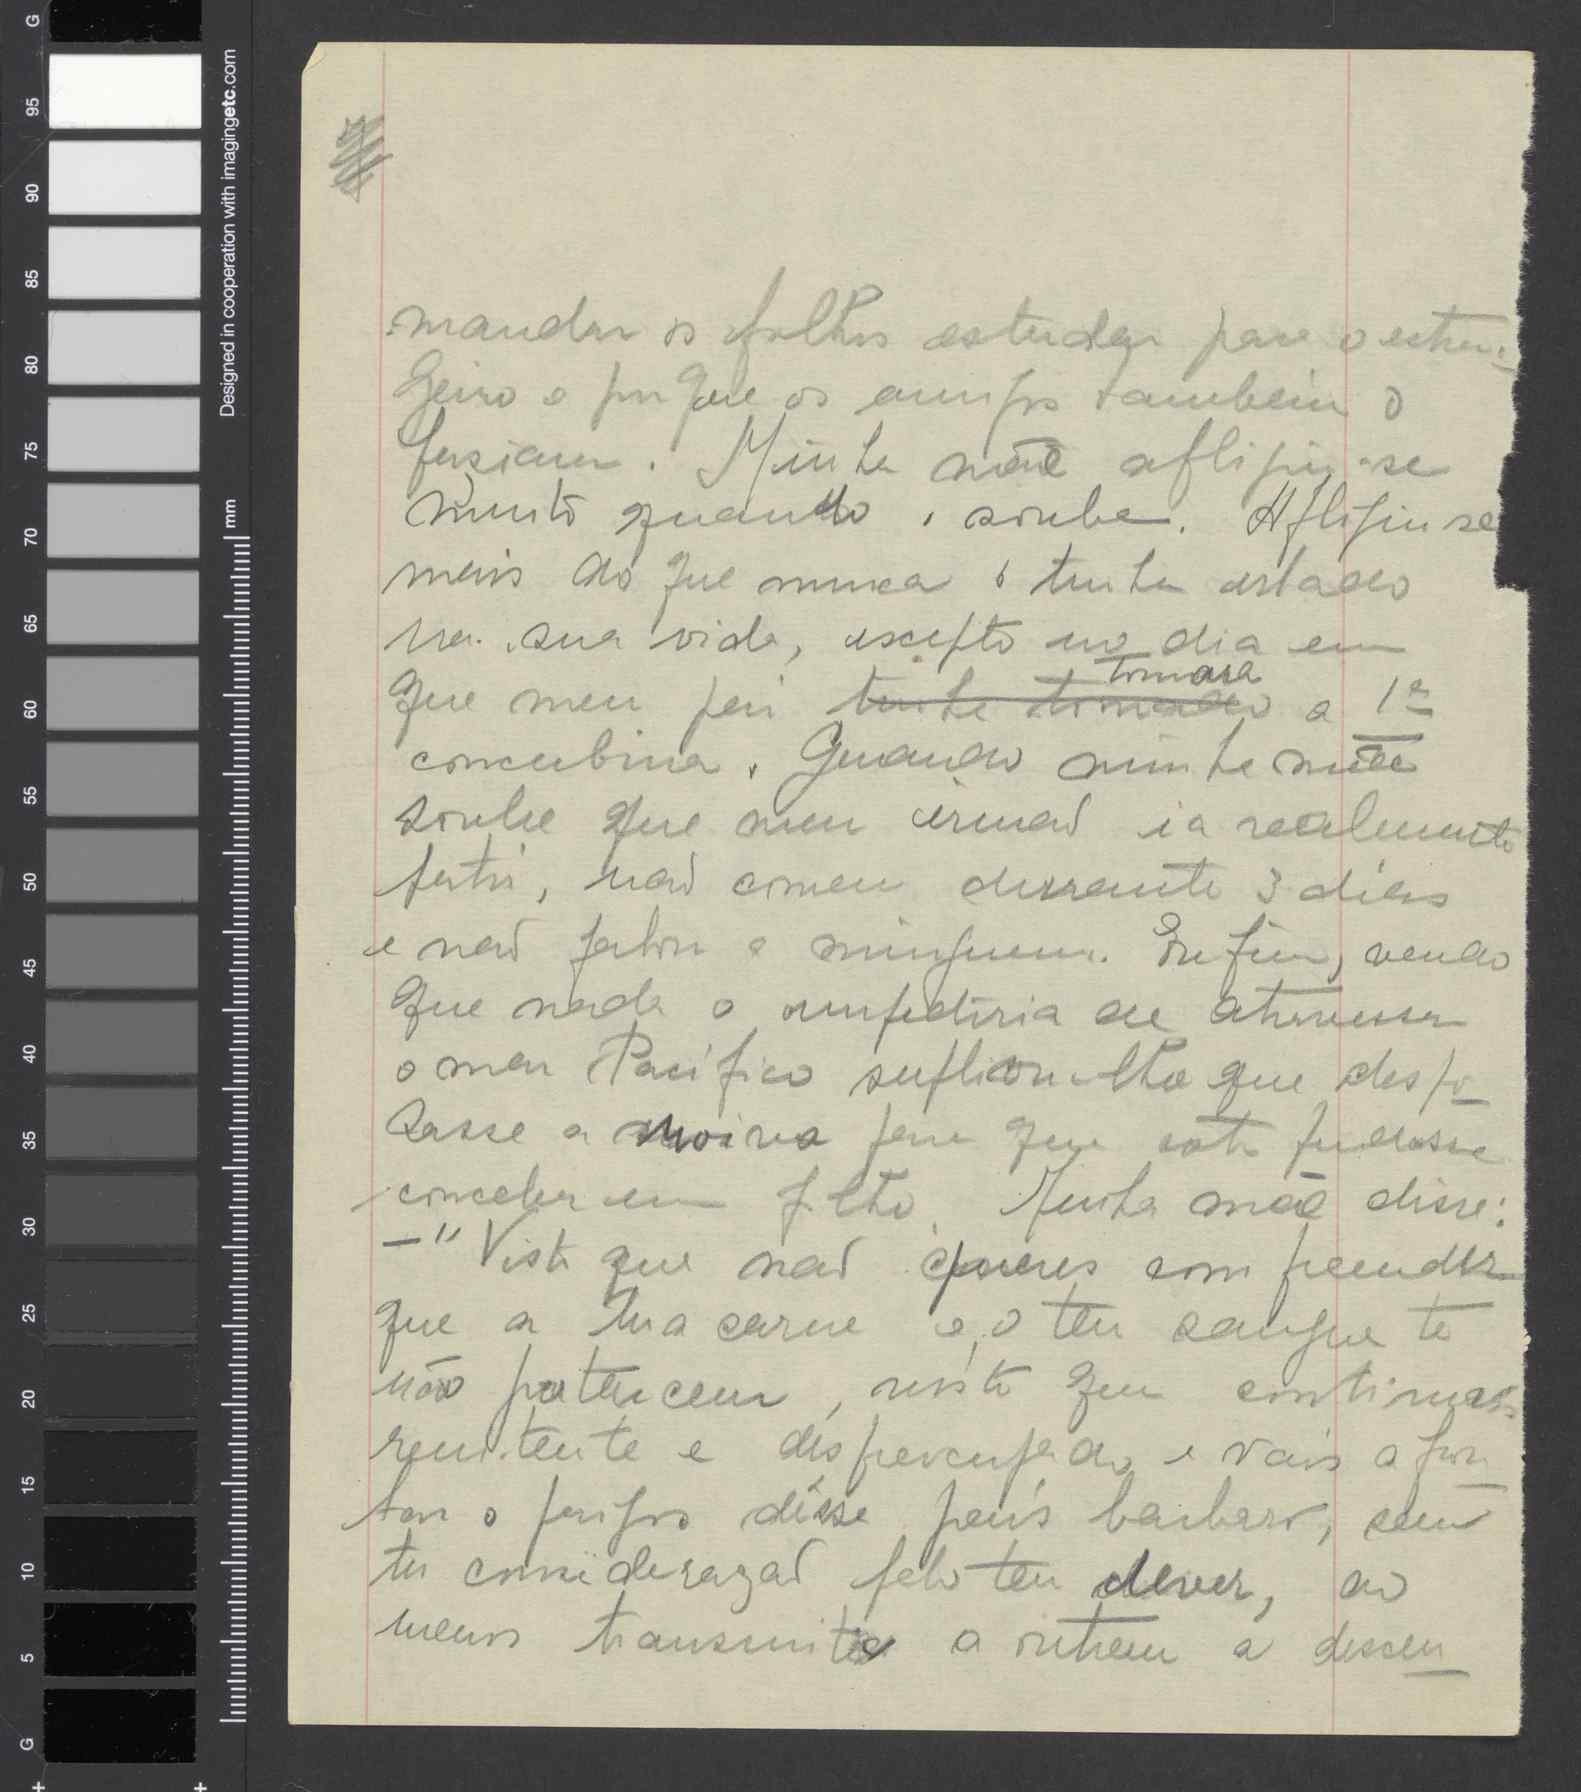 mandar os filhos estudar para o estran-
geiro e porque os amigos tambem o
fasiam. Minha mãe afligiu-se
muito quando soube. Afligiu se
mais do que nunca o tinha estado
na sua vida, excepto no dia em
que meu pai tinha tomado tomara a 1ª
concubina. Quando minha mãe
soube que meu irmaõ ia realmente
partir, naõ comeu durrante 3 dias
e naõ falou a ninguem. Enfim, vendo
que nada o impediria de atravessar
o mar Pacifico suplicou-lhe que despo
sasse a noiva para que esta pudesse
conceber um filho. Minha mãe disse:
—" Visto que naõ queres compreender
que a tua carne e o teu sangue te
não pertencem, visto que continuas
renitente e dispreocupado e vais afron
tar o perigo désse país barbaro, sem
ter consideraçaõ pelo teu dever, ao
menos transmite a outrem a descen
Designed in cooperation with imagingetc.com
mm
G
95
90
85
80
75
70
65
60
55
50
45
40
35
30
25
20
15
10
5
G